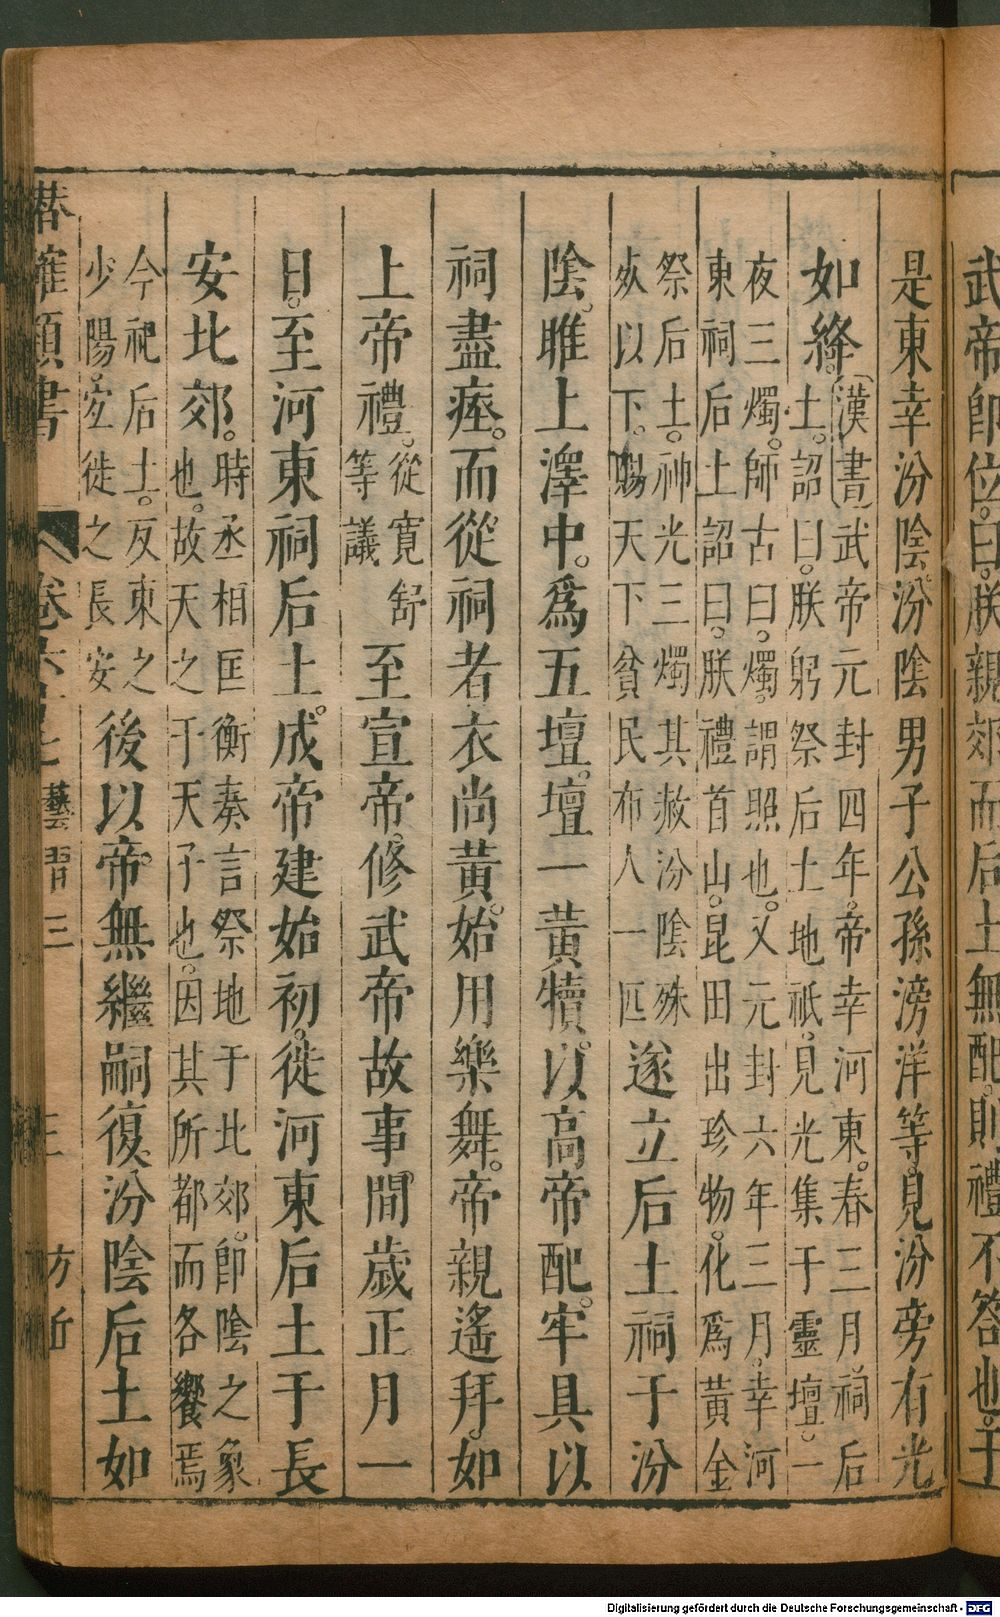 武帝即位曰朕親郊而后土無配則禮不答也于
是東幸汾陰汾陰男子公孫滂洋等見汾旁有光
如絳。〔漢書〕武帝元封四年。帝幸河東。春三月。祠后
土。詔曰。朕躬祭后土地祇。見光集于靈壇。一
夜三燭。師古曰。燭。謂照也。又元封六年三月。幸河
東祠后土詔曰。朕禮首山。昆田出珍物。化爲黃金
祭后土。神光三燭其赦汾陰殊
死以下。賜天下貧民布人一匹
遂立后土祠于汾
陰。脽上澤中。爲五壇。壇一黃犢。以高帝配。牢具以
祠盡瘞。而從祠者衣尚黃。始用樂舞。帝親遙拜。如
上帝禮。從寬舒
等議
至宣帝。修武帝故事間歲正月一
日。至河東祠后土。成帝建始初。徙河東后土于長
安北郊。時丞相匡衡奏言祭地于北郊。即陰之象
也。故天之于天子也。因其所都而各饗焉
今祀后土。反東之
少陽。宜徙之長安
後以帝無繼嗣復汾陰后土如
潛確類書
卷
藝習三
方丘
Digitalisierung gefördert durch die Deutsche Forschungsgemeinschaft - DFG